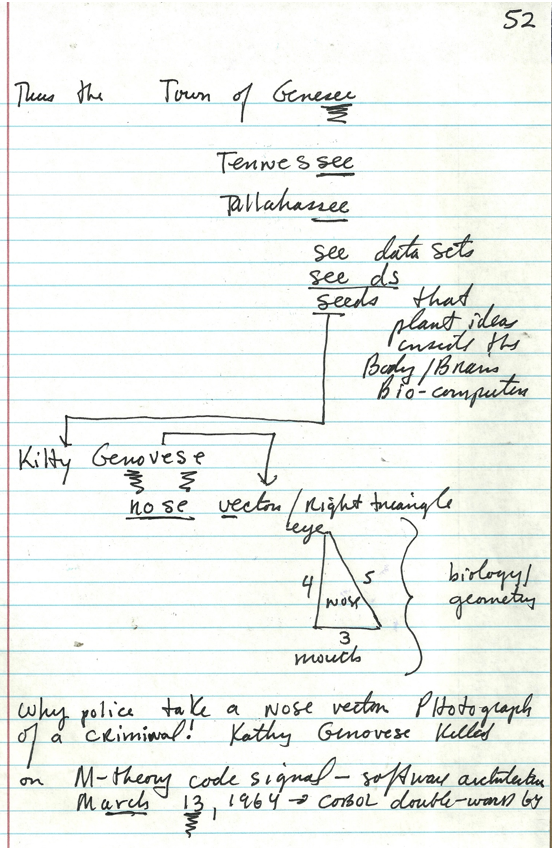 52
Thus the Town of Genesee
Tennessee
Tallahassee
see data sets
see ds
seeds that
plant ideas
inside the
Body/Brain
Bio-computer
Kitty Genovese
nose vector/Right triangle
eye
4 5
nose
3
mouth
biology/
geometry
Why police take a nose vector PHotograph
of a criminal! Kathy Genovese Killed
on M-theory code signal – software architecture
March 13, 1964 → COBOL double-word by